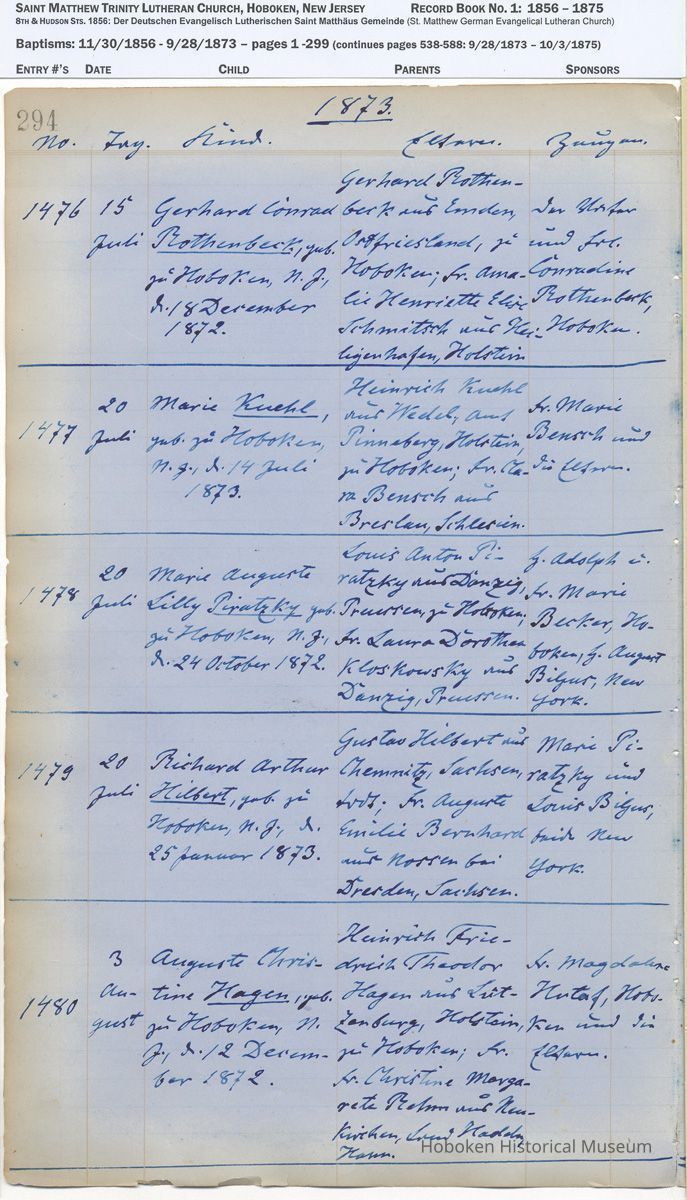 SAINT MATTHEW TRINITY LUTHERAN CHURCH, HOBOKEN, NEW JERSEY RECORD BOOK NO. 1: 1856 – 1875
8TH & HUDSON STS. 1856: Der Deutschen Evangelisch Lutherischen Saint Matthäus Gemeinde (St. Matthew German Evangelical Lutheran Church)
Baptisms: 11/30/1856 - 9/28/1873 – pages 1 -299 (continues pages 538-588: 9/28/1873 – 10/3/1875)
ENTRY #'S DATE CHILD PARENTS SPONSORS
294
1873.
No. Tag. Kind. Eltern. Zeugen.
1476
15
Juli
Gerhard Conrad
Rothenbeck, geb.
zu Hoboken, N. J.,
d. 18 December
1872.
Gerhard Rothen-
beck aus Emden,
Ostfriesland, zu
Hoboken; Fr. Ama-
lie Henriette Elise
Schmitsch aus Hei-
ligenhafen, Holstein
Der Vater
und Frl.
Conradine
Rothenbeck,
Hoboken.
1477
20
Juli
Marie Kuehl,
geb. zu Hoboken,
N. J., d. 14 Juli
1873.
Heinrich Kuehl
aus Wedel, Amt
Pinneberg, Holstein,
zu Hoboken; Fr. Cla-
ra Bensch aus
Breslau, Schlesien.
Fr. Marie
Bensch und
die Eltern.
1478
20
Juli
Marie Auguste
Lilly Piratzky geb.
zu Hoboken, N. J.,
d. 24 October 1872.
Louis Anton Pi-
ratzky aus Danzig,
Preussen, zu Hoboken;
Fr. Laura Dorothea
Kloskowsky aus
Danzig, Preussen.
H. Adolph u.
Fr. Marie
Becker, Ho-
boken, H. August
Bilgus, New
York.
1479
20
Juli
Richard Arthur
Hilbert, geb. zu
Hoboken, N. J., d.
25 Januar 1873.
Gustav Hilbert aus
Chemnitz, Sachsen,
todt; Fr. Auguste
Emilie Bernhard
aus Nossen bei
Dresden, Sachsen.
Marie Pi-
ratzky und
Louis Bilgus,
beide New
York.
1480
3
Au-
gust
Auguste Chris-
tine Hagen, geb.
zu Hoboken, N.
J., d. 12 Decem-
ber 1872.
Heinrich Frie-
drich Theodor
Hagen aus Lüt-
zenburg, Holstein,
zu Hoboken; Fr.
Fr. Christine Marga-
rete Rehm aus Neu-
kirchen, Land Hadeln,
Hann.
Fr. Magdalene
Hutaf, Hobo-
ken und die
Eltern.
Hoboken Historical Museum